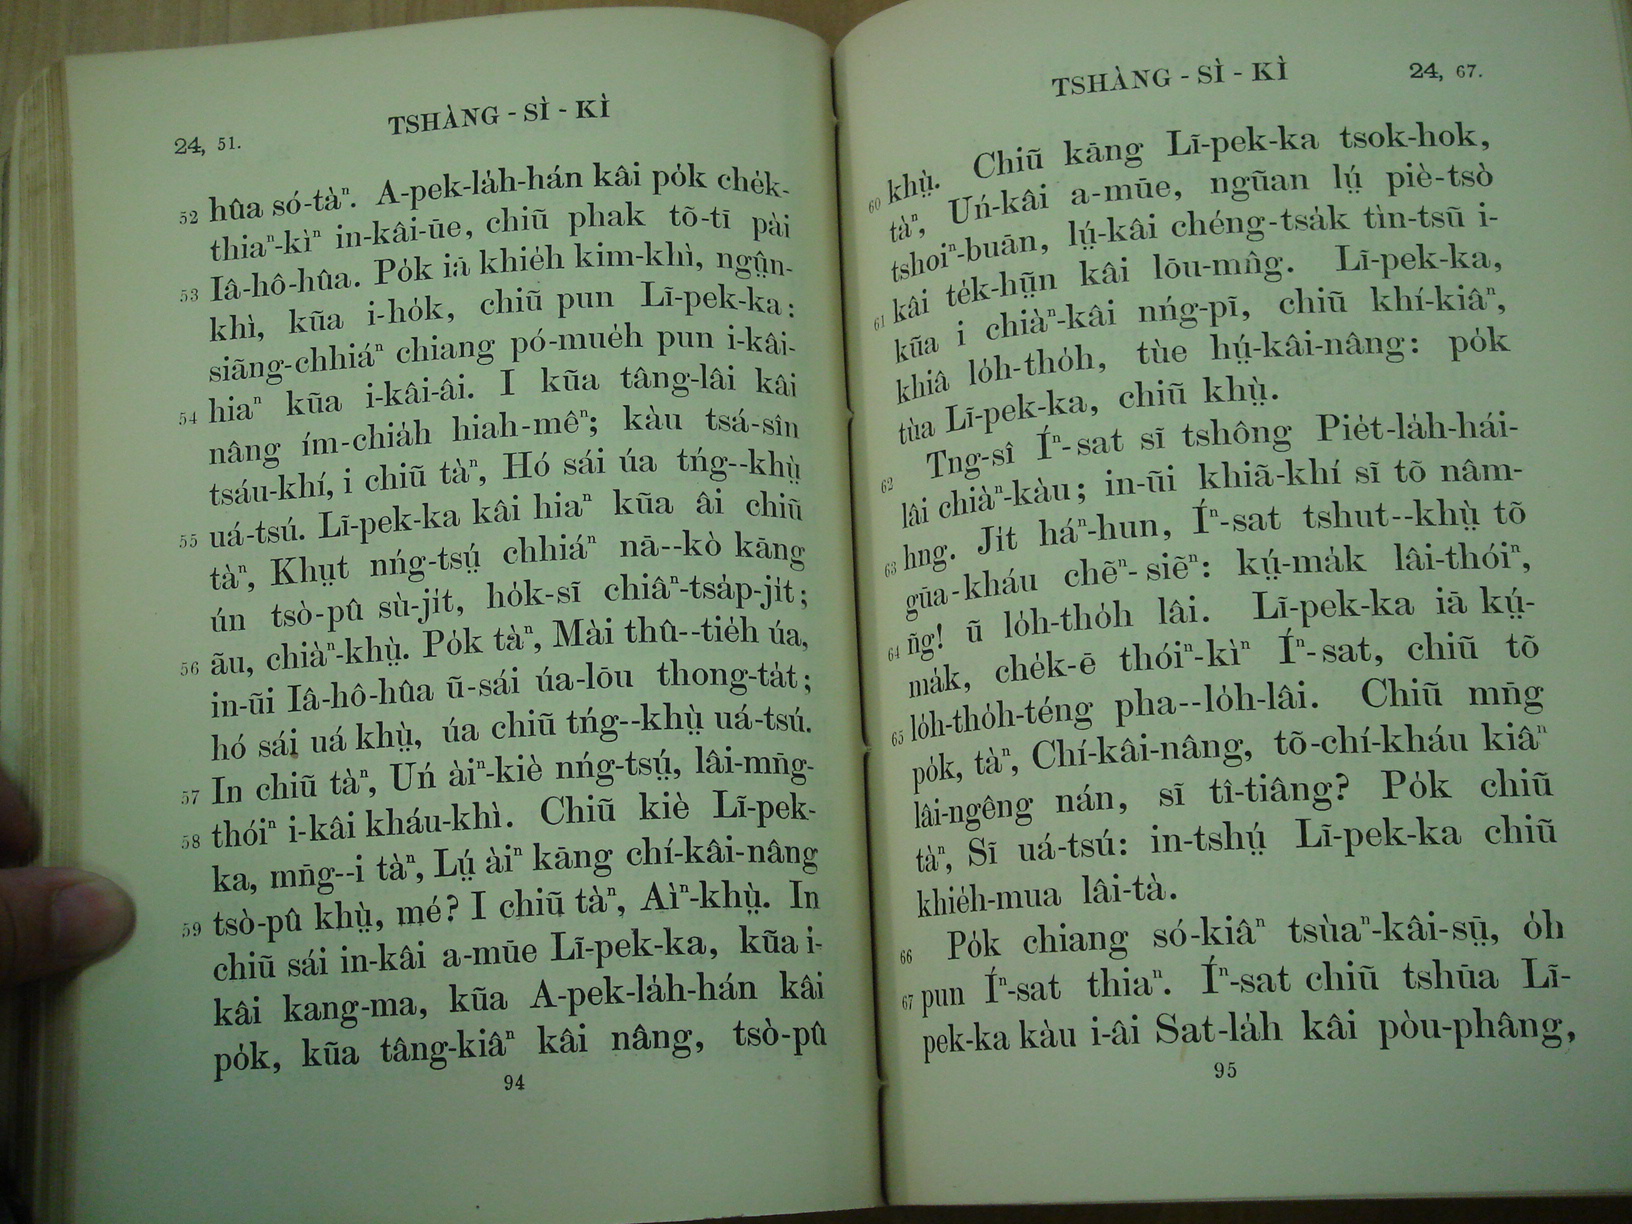 24, 51.
TSHÀNG - SÌ - KÌ
hûa só-tàⁿ. A-pek-la̍h-hán kâi po̍k che̍k-
52 thiaⁿ-kìⁿ in-kâi-ūe, chiũ phak tõ-tī pài
Iâ-hô-hûa. Po̍k iā khie̍h kim-khì, ngṳ̂n-
53 khì, kũa i-ho̍k, chiũ pun Lī-pek-ka:
siãng-chhiáⁿ chiang pó-mue̍h pun i-kâi-
hiaⁿ kũa i-kâi-âi. I kũa tâng-lâi kâi
54 nâng ím-chia̍h hiah-mêⁿ; kàu tsá-sîn
tsáu-khí, i chiũ tàⁿ, Hó sái úa tńg--khṳ̀
uá-tsú. Lī-pek-ka kâi hiaⁿ kũa âi chiũ
55 tàⁿ, Khṳt nńg-tsṳ́ chhiáⁿ nā--kò kāng
ún tsò-pû sù-ji̍t, ho̍k-sī chiâⁿ-tsa̍p-ji̍t;
ãu, chiàⁿ-khṳ̀. Po̍k tàⁿ, Mài thû--tie̍h úa,
56 in-ũi Iâ-hô-hûa ũ-sái úa-lōu thong-ta̍t;
hó sái uá khṳ̀, úa chiũ tńg--khṳ̀ uá-tsú.
In chiũ tàⁿ, Uń àiⁿ-kiè nńg-tsṳ́, lâi-mn̄g-
57 thóiⁿ i-kâi kháu-khì. Chiũ kiè Lī-pek-
58 ka, mn̄g--i tàⁿ, Lṳ́ àiⁿ kāng chí-kâi-nâng
tsò-pû khṳ̀, mé? I chiũ tàⁿ, Aìⁿ-khṳ̀. In
59 chiũ sái in-kâi a-mūe Lī-pek-ka, kũa i-
kâi kang-ma, kũa A-pek-la̍h-hán kâi
po̍k, kũa tâng-kiâⁿ kâi nâng, tsò-pû
94
TSHÀNG - SÌ - KÌ
24, 67.
khṳ̀. Chiũ kāng Lī-pek-ka tsok-hok,
60 tàⁿ, Uń-kâi a-mūe, ngũan lṳ́ piè-tsò
tshoiⁿ-buān, lṳ́-kâi chéng-tsa̍k tìn-tsũ i-
kâi te̍k-hṳ̃n kâi lōu-mn̂g. Lī-pek-ka,
61 kũa i chiàⁿ-kâi nńg-pī, chiũ khí-kiâⁿ,
khiâ lo̍h-tho̍h, tùe hṳ́-kâi-nâng: po̍k
tùa Lī-pek-ka, chiũ khṳ̀.
Tng-sî Íⁿ-sat sī tshông Pie̍t-la̍h-hái-
62 lâi chiàⁿ-kàu; in-ũi khiã-khí sī tõ nâm-
hng. Ji̍t háⁿ-hun, Íⁿ-sat tshut--khṳ̀ tõ
63 gūa-kháu chẽⁿ-siẽⁿ: kṳ́-ma̍k lâi-thóiⁿ,
n̄g! ũ lo̍h-tho̍h lâi. Lī-pek-ka iā kṳ́-
64 ma̍k, che̍k-ē thóiⁿ-kìⁿ Íⁿ-sat, chiũ tõ
lo̍h-tho̍h-téng pha--lo̍h-lâi. Chiũ mn̄g
65 po̍k, tàⁿ, Chí-kâi-nâng, tõ-chí-kháu kiâⁿ
lâi-ngêng nán, sī tî-tiâng? Po̍k chiũ
tàⁿ, Sī uá-tsú: in-tshṳ́ Lī-pek-ka chiũ
khie̍h-mua lâi-tà.
66 Po̍k chiang só-kiâⁿ tsùaⁿ-kâi-sṳ̄, o̍h
pun Íⁿ-sat thiaⁿ. Íⁿ-sat chiũ tshūa Lī-
67 pek-ka kàu i-âi Sat-la̍h kâi pòu-phâng,
95